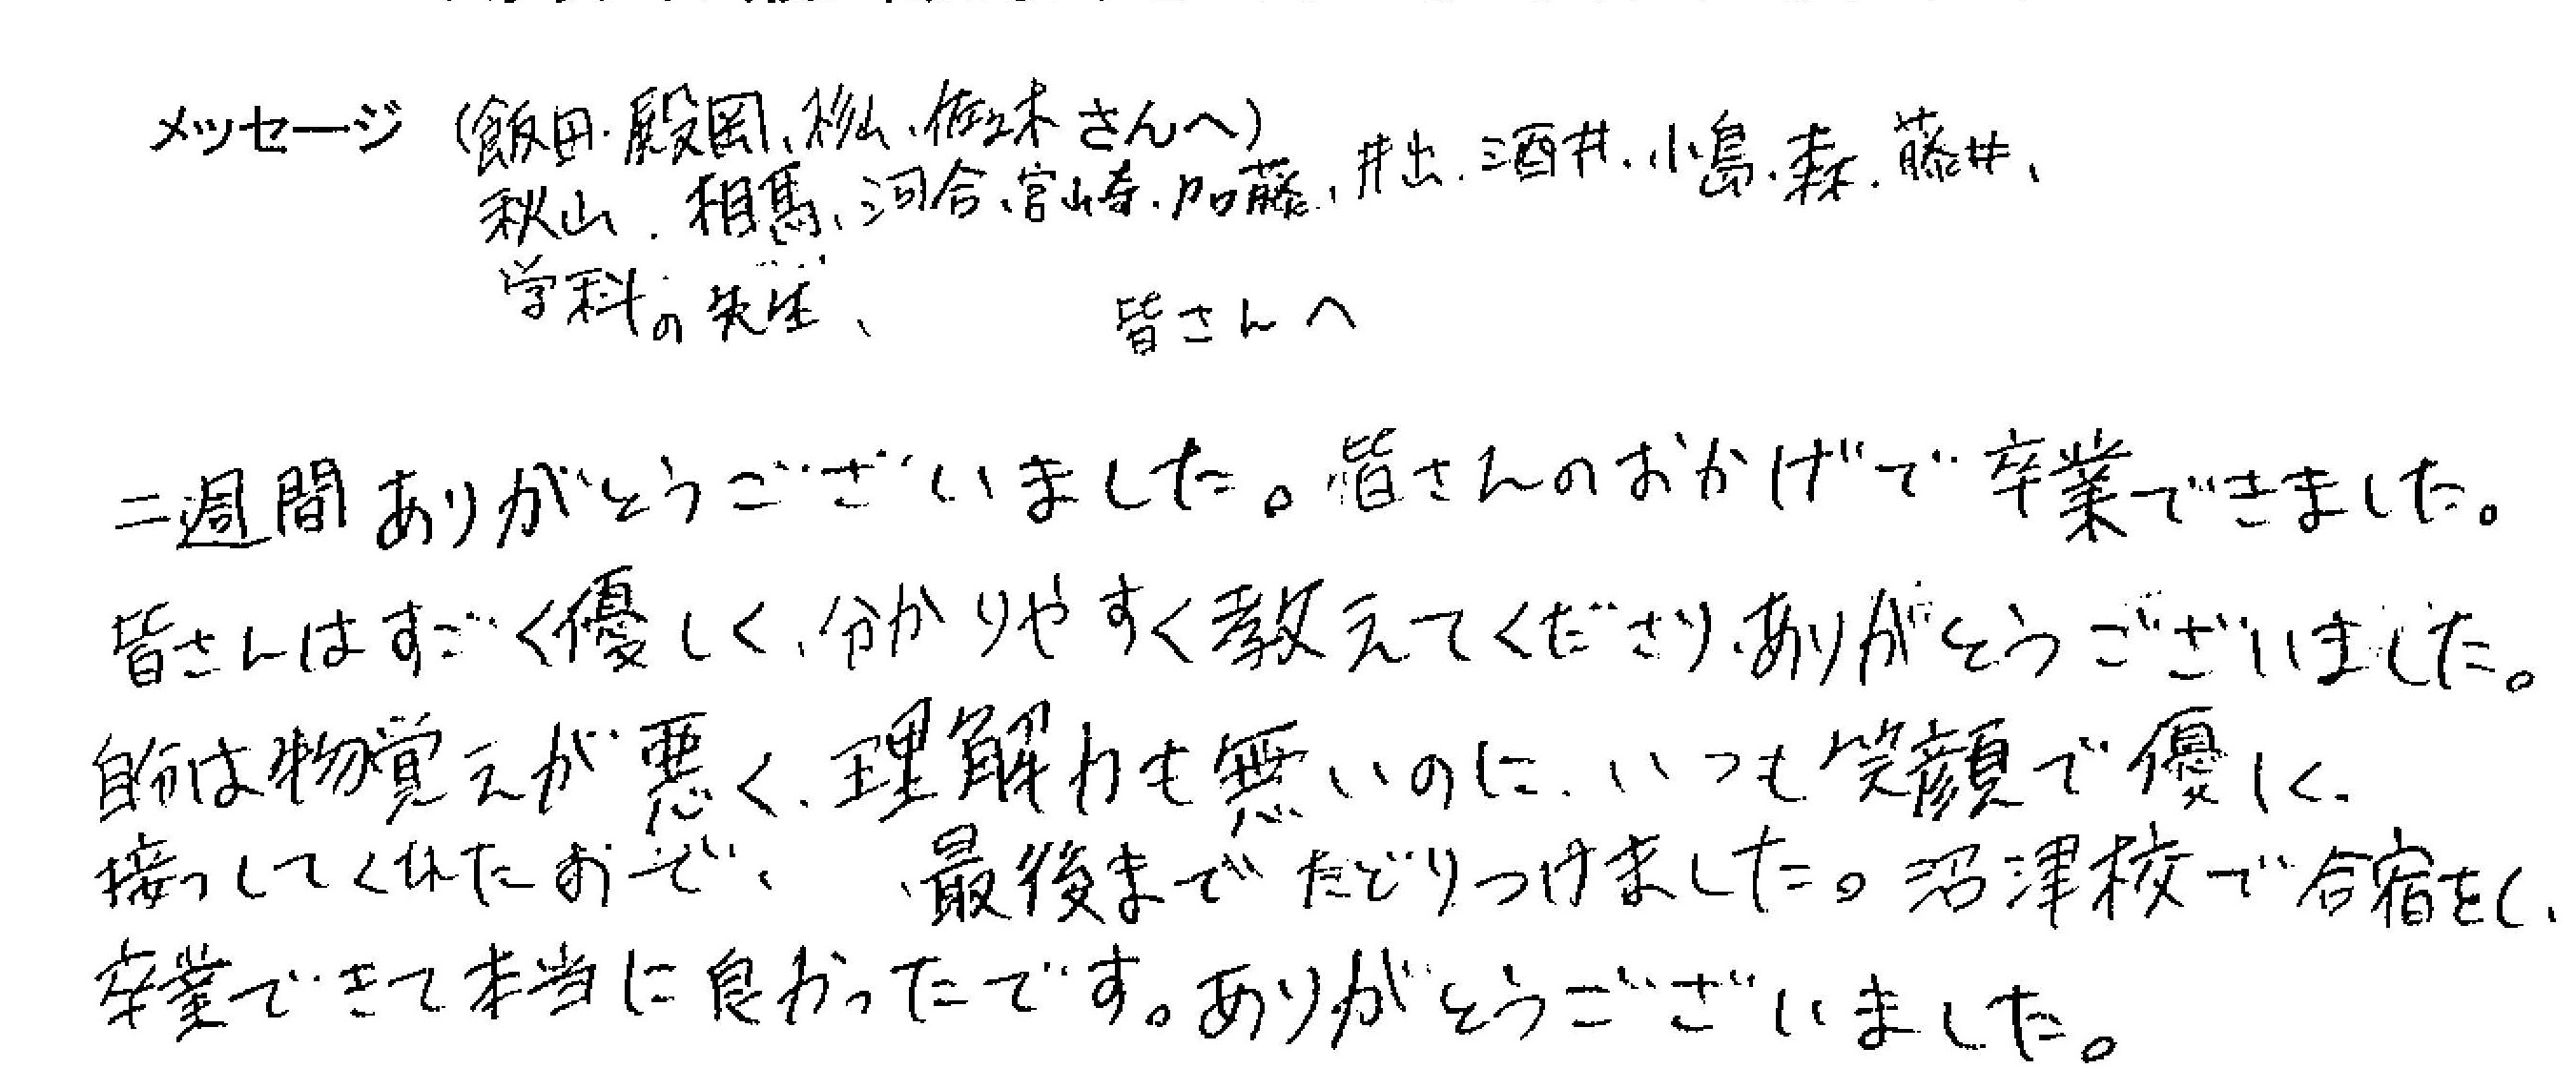 メッセージ (飯田・殿岡、杉山、佐々木さんへ)
秋山、相馬、河合、宮崎、加藤、井出、酒井、小島、森、藤井、
学科の先生、 皆さんへ
二週間ありがとうございました。皆さんのおかげで卒業できました。
皆さんはすごく優しく、分かりやすく教えてくださり、ありがとうございました。
自分は物覚えが悪く、理解力も無いのに、いつも笑顔で優しく、
接っしてくれたおで、 、最後までたどりつけました。沼津校で合宿をし、
卒業できて本当に良かったです。ありがとうございました。